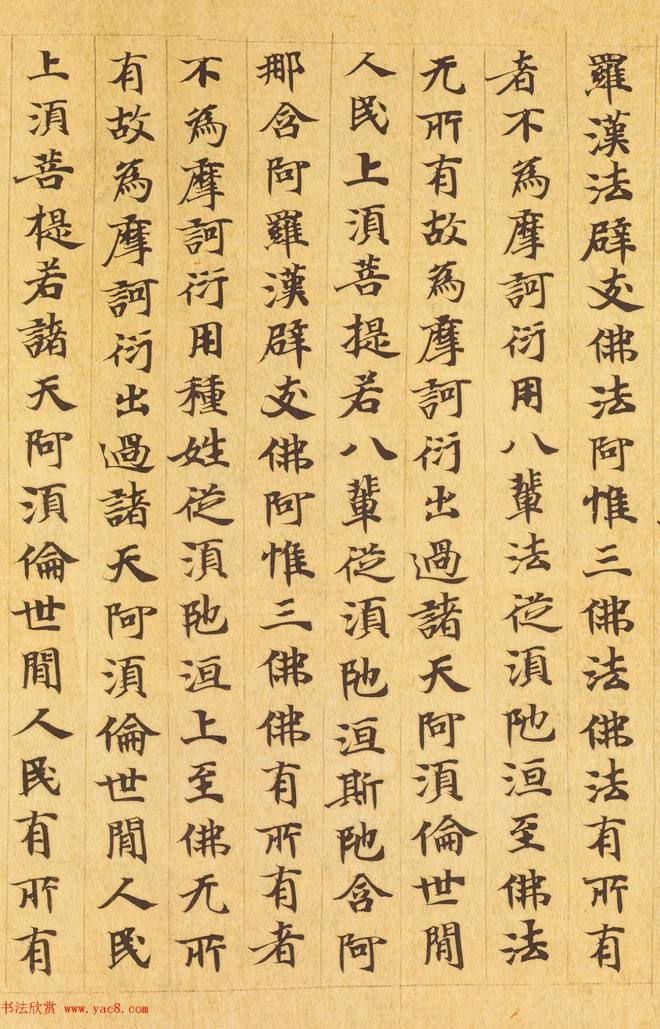 羅漢法辟支佛法阿惟三佛法佛法有所有
者不為摩訶衍用八輩法從須陁洹至佛法
无所有故為摩訶衍出過諸天阿須倫世間
人民上須菩提若八輩從須陁洹斯陁含阿
那含阿羅漢辟支佛阿惟三佛佛有所有者
不為摩訶衍用種姓從須陁洹上至佛无所
有故為摩訶衍出過諸天阿須倫世間人民
上須菩提若諸天阿須倫世間人民有所有
书法欣赏 www.yac8.com